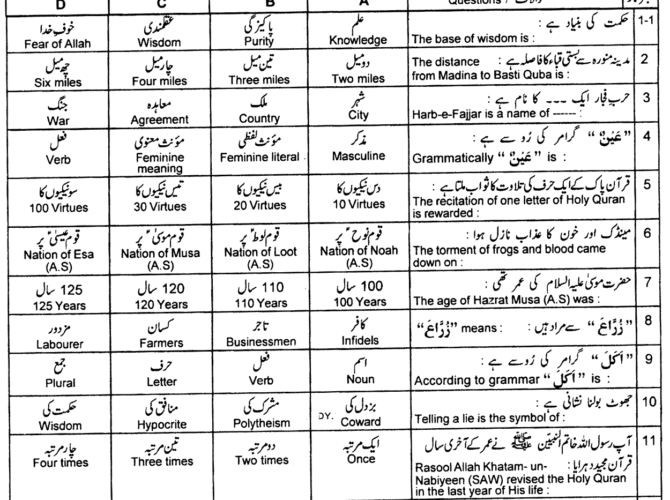 D C B A Questions
خوفِ خدا عقلمندی پاکیزگی علم حکمت کی بنیاد ہے : 1-1
Fear of Allah Wisdom Purity Knowledge The base of wisdom is :
چھ میل چار میل تین میل دو میل مدینہ منورہ سے بستی قباء کا فاصلہ ہے : The distance 2
Six miles Four miles Three miles Two miles from Madina to Basti Quba is :
جنگ معاہدہ ملک شہر حرب فجار ایک ۔۔۔ کا نام ہے : 3
War Agreement Country City Harb-e-Fajjar is a name of ------ :
فعل مؤنث معنوی مؤنث لفظی مذکر ”عَيْنٌ“ گرامر کی رُو سے ہے : 4
Verb Feminine meaning Feminine literal Masculine Grammatically “عَيْنٌ” is :
سو نیکیوں کا تیس نیکیوں کا بیس نیکیوں کا دس نیکیوں کا قرآن پاک کے ایک حرف کی تلاوت کا ثواب ملتا ہے : 5
100 Virtues 30 Virtues 20 Virtues 10 Virtues The recitation of one letter of Holy Quran is rewarded :
قوم عیسیٰؑ پر قوم موسیٰؑ پر قوم لوطؑ پر قوم نوحؑ پر مینڈک اور خون کا عذاب نازل ہوا : 6
Nation of Esa (A.S) Nation of Musa (A.S) Nation of Loot (A.S) Nation of Noah (A.S) The torment of frogs and blood came down on :
125 سال 120 سال 110 سال 100 سال حضرت موسیٰ علیہ السلام کی عمر تھی : 7
125 Years 120 Years 110 Years 100 Years The age of Hazrat Musa (A.S) was :
مزدور کسان تاجر کافر ”زُرَّاعَ“ سے مراد ہیں : “زُرَّاعَ” means : 8
Labourer Farmers Businessmen Infidels
جمع حرف فعل اسم ”اَكَلَ“ گرامر کی رُو سے ہے : 9
Plural Letter Verb Noun According to grammar “اَكَلَ” is :
حکمت کی منافق کی مشرک کی بزدل کی جھوٹ بولنا نشانی ہے : 10
Wisdom Hypocrite Polytheism DY. Coward Telling a lie is the symbol of :
چار مرتبہ تین مرتبہ دو مرتبہ ایک مرتبہ آپ رسول اللہ خاتم النبیین ﷺ نے عمر کے آخری سال 11
Four times Three times Two times Once قرآن مجید دہرایا : Rasool Allah Khatam- un-
Nabiyeen (SAW) revised the Holy Quran
in the last year of His life :